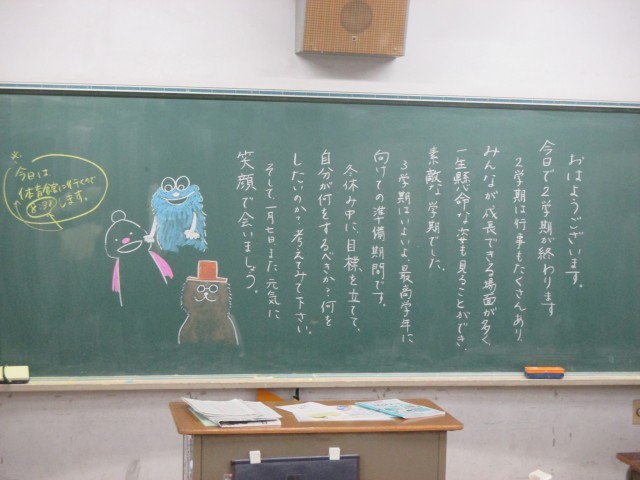 おはようございます。
今日で2学期が終わります
2学期は行事もたくさんあり、
みんなが成長できる場面が多く
一生懸命な姿を見ることができ、
素敵な学期でした。
3学期はいよいよ、最高学年に
向けての準備期間です。
冬休み中に、目標を立てて、
自分が何をするべきか?何を
したいのか?考えてみて下さい。
そして一月七日また元気に
笑顔で会いましょう。
今日は
体育館に行くので
します。